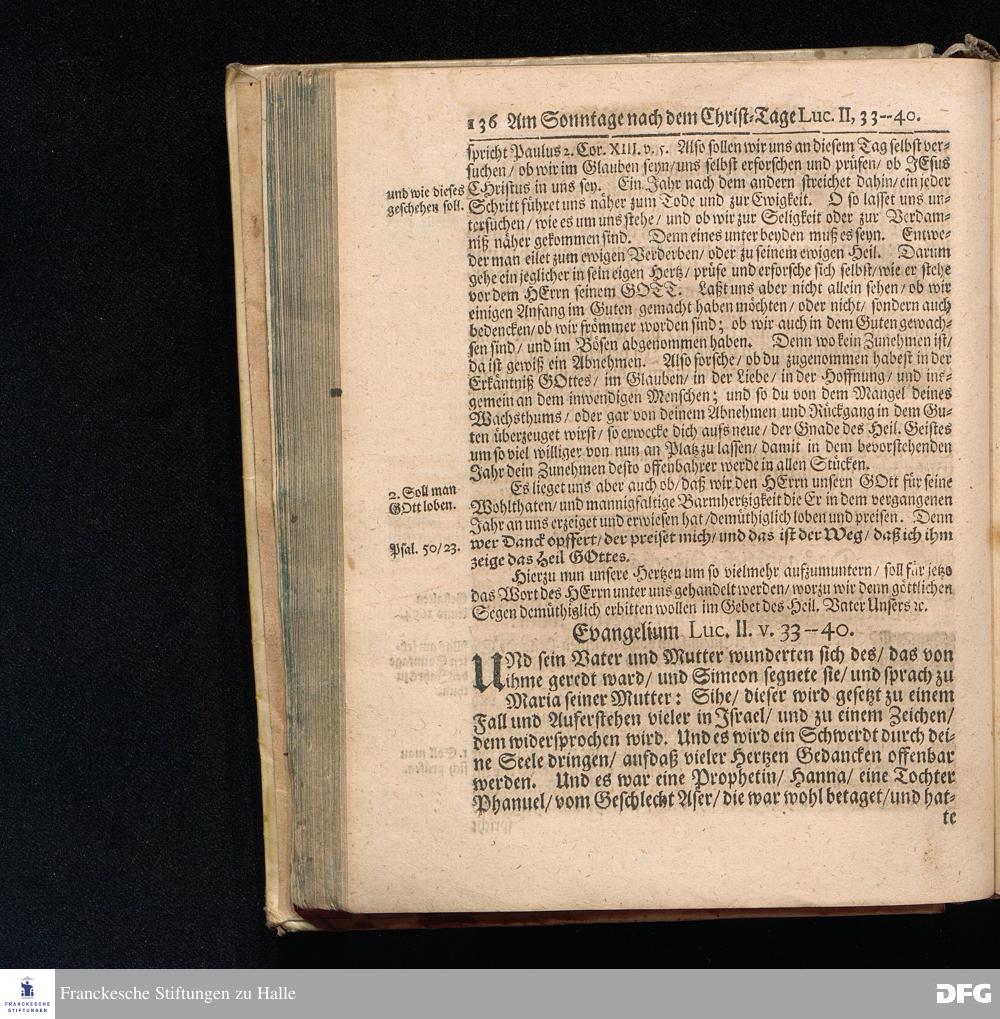 136 Am Sonntage nach dem Christ-Tage Luc. II, 33--40.
spricht Paulus 2. Cor. XIII. v. 5. Also sollen wir uns an diesem Tag selbst ver-
suchen/ ob wir im Glauben seyn/ uns selbst erforschen und prüfen/ ob JEsus
und wie dieses
geschehen soll.
CHristus in uns sey. Ein Jahr nach dem andern streichet dahin/ ein jeder
Schritt führet uns näher zum Tode und zur Ewigkeit. O so lasset uns un-
tersuchen/ wie es um uns stehe/ und ob wir zur Seligkeit oder zur Verdam-
niß näher gekommen sind. Denn eines unter beyden muß es seyn. Entwe-
der man eilet zum ewigen Verderben/ oder zu seinem ewigen Heil. Darum
gehe ein jeglicher in sein eigen Hertz/ prüfe und erforsche sich selbst/ wie er stehe
vor dem HErrn seinem GOTT. Laßt uns aber nicht allein sehen/ ob wir
einigen Anfang im Guten gemacht haben möchten/ oder nicht/ sondern auch
bedencken/ ob wir frömmer worden sind; ob wir auch in dem Guten gewach-
sen sind/ und im Bösen abgenommen haben. Denn wo kein Zunehmen ist/
da ist gewiß ein Abnehmen. Also forsche/ ob du zugenommen habest in der
Erkäntniß GOttes/ im Glauben/ in der Liebe/ in der Hoffnung/ und ins-
gemein an dem inwendigen Menschen; und so du von dem Mangel deines
Wachsthums/ oder gar von deinem Abnehmen und Rückgang in dem Gu-
ten überzeuget wirst/ so erwecke dich aufs neue/ der Gnade des Heil. Geistes
um so viel williger von nun an Platz zu lassen/ damit in dem bevorstehenden
Jahr dein Zunehmen desto offenbahrer werde in allen Stücken.
2. Soll man
GOtt loben.
Es lieget uns aber auch ob/ daß wir den HErrn unsern GOtt für seine
Wohlthaten/ und mannigfaltige Barmhertzigkeit die Er in dem vergangenen
Jahr an uns erzeiget und erwiesen hat/ demüthiglich loben und preisen. Denn
Psal. 50/23.
wer Danck opffert/ der preiset mich/ und das ist der Weg/ daß ich ihm
zeige das Heil GOttes.
Hierzu nun unsere Hertzen um so vielmehr aufzumuntern/ soll für jetzo
das Wort des HErrn unter uns gehandelt werden/ worzu wir denn göttlichen
Segen demüthiglich erbitten wollen im Gebet des Heil. Vater Unsers ꝛc.
Evangelium Luc. II. v. 33--40.
UNd sein Vater und Mutter wunderten sich des/ das von
ihme geredt ward/ und Simeon segnete sie/ und sprach zu
Maria seiner Mutter: Sihe/ dieser wird gesetzt zu einem
Fall und Auferstehen vieler in Israel/ und zu einem Zeichen/
dem widersprochen wird. Und es wird ein Schwerdt durch dei-
ne Seele dringen/ aufdaß vieler Hertzen Gedancken offenbar
werden. Und es war eine Prophetin/ Hanna/ eine Tochter
Phanuel/ vom Geschlecht Aser/ die war wohl betaget/ und hat-
te
FRANCKESCHE
STIFTUNGEN
Franckesche Stiftungen zu Halle
DFG